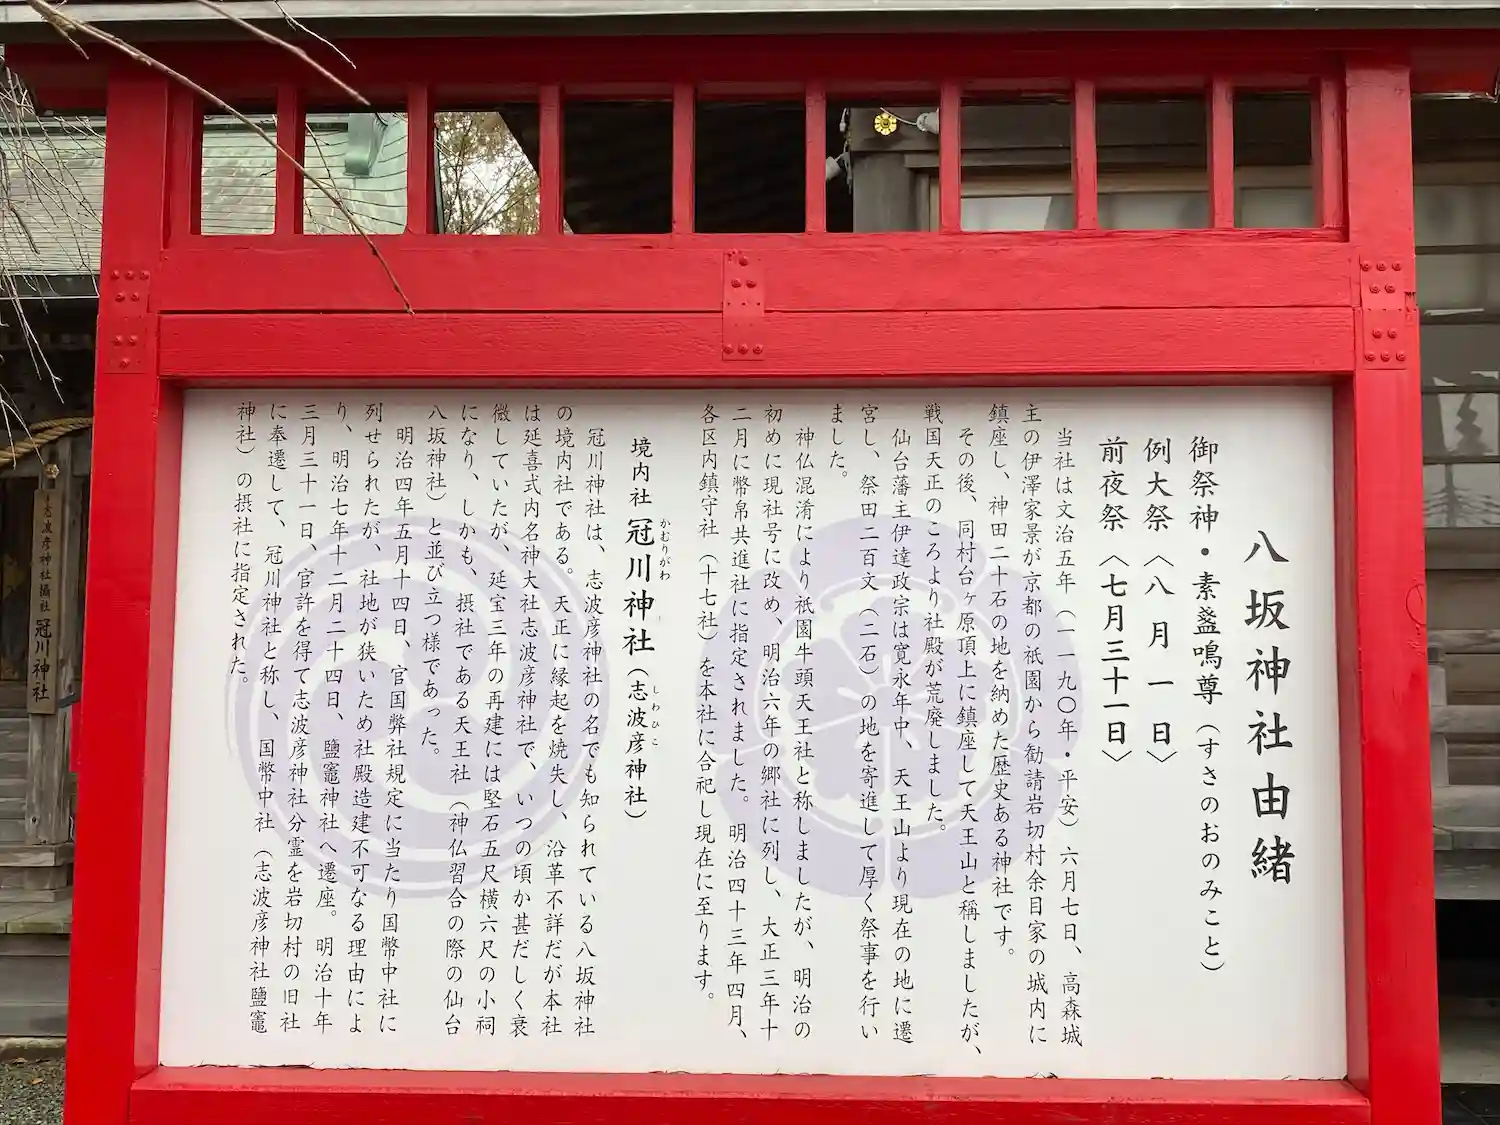 八坂神社由緒
御祭神・素盞鳴尊（すさのおのみこと）
例大祭〈八月一日〉
前夜祭〈七月三十一日〉
当社は文治五年（一一九〇年・平安）六月七日、高森城
主の伊澤家景が京都の祇園から勧請岩切村余目家の城内に
鎮座し、神田二十石の地を納めた歴史ある神社です。
その後、同村台ヶ原頂上に鎮座して天王山と稱しましたが、
戦国天正のころより社殿が荒廃しました。
仙台藩主伊達政宗は寛永年中、天王山より現在の地に遷
宮し、祭田二百文（二石）の地を寄進して厚く祭事を行い
ました。
神仏混淆により祇園牛頭天王社と称しましたが、明治の
初めに現社号に改め、明治六年の郷社に列し、大正三年十
二月に幣帛共進社に指定されました。明治四十三年四月、
各区内鎮守社（十七社）を本社に合祀し現在に至ります。
境内社 冠川神社（志波彦神社）
かむりがわ
しわひこ
冠川神社は、志波彦神社の名でも知られている八坂神社
の境内社である。天正に縁起を焼失し、沿革不詳だが本社
は延喜式内名神大社志波彦神社で、いつの頃か甚だしく衰
微していたが、延宝三年の再建には堅石五尺横六尺の小祠
になり、しかも、摂社である天王社（神仏習合の際の仙台
八坂神社）と並び立つ様であった。
明治四年五月十四日、官国弊社規定に当たり国幣中社に
列せられたが、社地が狭いため社殿造建不可なる理由によ
り、明治七年十二月二十四日、鹽竈神社へ遷座。明治十年
三月三十一日、官許を得て志波彦神社分霊を岩切村の旧社
に奉遷して、冠川神社と称し、国幣中社（志波彦神社鹽竈
神社）の摂社に指定された。
志波彦神社攝社 冠川神社